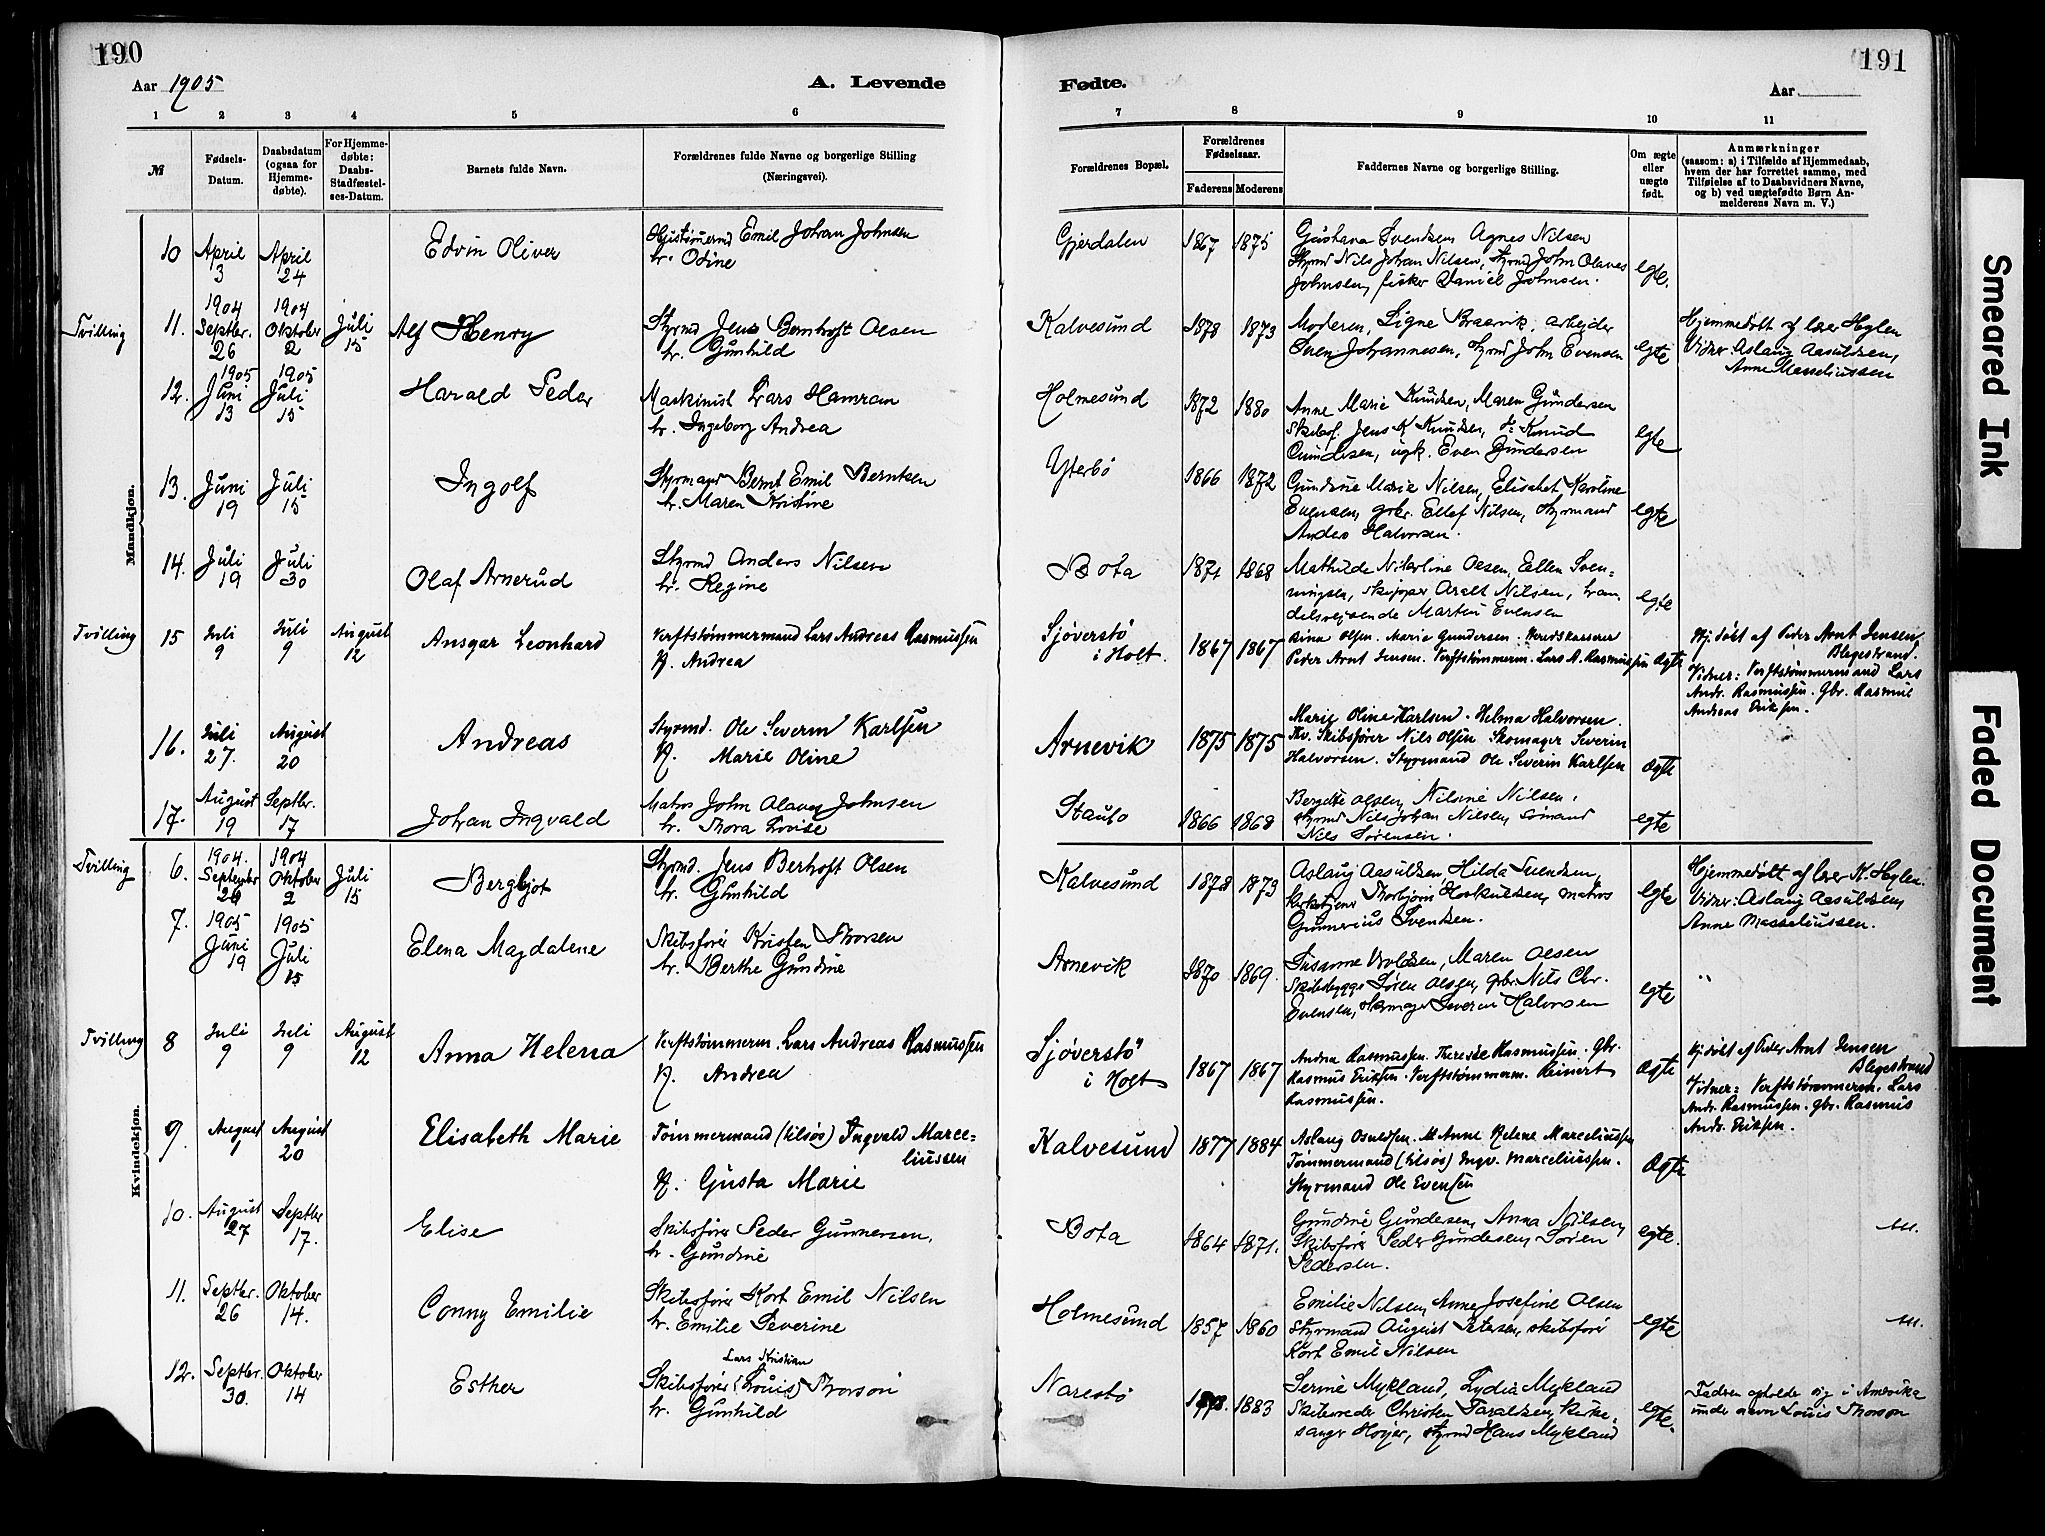 190
Aar 1905
A. Levende
1 2 3 4 5 6
№
Fødsels-
Datum.
Daabsdatum
(ogsaa for
Hjemme-
døbte).
For Hjemme-
døbte:
Daabs-
Stadfæstel-
ses-Datum.
Barnets fulde Navn.
Forældrenes fulde Navne og borgerlige Stilling
(Næringsvei).
Mandkjøn.
10 April 3 April 24 Edvin Oliver Emil Johan Johnsen
h. Odine
Tvilling 11. 1904 Septbr. 26 1904 Oktober 2 Juli 15 Alf Henry Styrmd Jens Bernhoft Olsen
h. Gunhild
12. 1905 Juni 13 1905 Juli 15 Harald Peder Maskinist Lars Hamran
h. Ingeborg Andrea
13. Juni 19 Juli 15 Ingolf Styrmand Bernt Emil Berntsen
h. Maren Kristine
14. Juli 19 Juli 30 Olaf Arnerud Styrmd Anders Nilsen
h. Regine
Tvilling 15 Juli 9 Juli 9 August 12 Ansgar Leonhard Verftstømmermand Lars Andreas Rasmussen
H. Andrea
16. Juli 27. August 20 Andreas Styrmd. Ole Severin Karlsen
H. Marie Oline
17. August 19 Septbr. 17 Johan Ingvald Matros John Olaves Johnsen
h. Thora Lovise
Kvindekjøn.
Tvilling 6. 1904. September 26 1904 Oktober 2 Juli 15 Bergljot Styrmd. Jens Berhoft Olsen
h. Gunhild
7. 1905 Juni 19 1905 Juli 15 Elena Magdalene Skibsfører Kristen Thorsen
h. Berthe Gundine
Tvilling 8 Juli 9 Juli 9 August 12 Anna Helena Verftstømmerm. Lars Andreas Rasmussen
H. Andrea
9. August 1 August 20 Elisabeth Marie Tømmermand (tilsøs) Ingvald Marce-
liussen
H. Gusta Marie
10. August 27 Septbr 17. Elise Skibsfører Peder Gunnersen.
h. Gundine
11. Septbr. 26 Oktober 14. Conny Emilie Skibsfører Kort Emil Nilsen
h. Emilie Severine
12. Septbr. 30. Oktober 14 Esther Lars Kristian
Skibsfører (Louis) Thorson
h. Gunhild
191
Fødte.
Aar
7 8 9 10 11
Forældrenes Bopæl.
Forældrenes
Fødselsaar.
Faderens Moderens
Faddernes Navne og borgerlige Stilling.
Om ægte
eller
uægte
født.
Anmærkninger
(saasom: a) i Tilfælde af Hjemmedaab,
hvem der har forrettet samme, med
Tilføielse af to Daabsvidners Navne,
og b) ved uægtefødte Børn An-
melderens Navn m. V.)
Gjerdalen 1867 1875 Gustava Svendsen Agnes Nilsen
Styrmd Nils Johan Nilsen, styrmd John Olaves
Johnsen, fisker Daniel Johnsen. egte.
Kalvesund 1878 1873 Moderen, Signe Braarvik, arbejder
Sven Johannesen, styrmd John Evensen egte
Hjemmedøbt af lærer Hylen
Vidner: Aslaug Aasuldsen,
Anne Masseliussen
Holmesund 1872 1880 Anne Marie Knudsen, Maren Gundersen
Skibsf. Jens K Knudsen, Knud
Gundersen, ugk. Even Gundersen egte
Ytterbø 1866 1872 Gundine Marie Nilsen, Elisabet Karoline
Evensen, gbr. Ellef Nilsen, styrmand
Anders Halvorsen. egte
Bota 1871 1868 Mathilde Nikoline Olsen, Ellen Sven-
ningsen, skipper Aralt Nilsen, han-
delsrejsende Martin Evensen egte
Sjøverstø
i Holt. 1867 1867 Olsen. Marie Gundersen. Herredskasserer
Peder Arnt Jensen. Verftstømmerm. Lars A. Rasmussen Ægte
Hj. døbt af Peder Arnt Jensen
Blegestrand.
Vidner: Verftstømmermand Lars
Andr. Rasmussen. Gbr. Rasmus
Andreas Eriksen.
Arnevik 1875 1875 Marie Oline Karlsen. Helma Halvorsen.
Fhv. Skibsfører Nils Olsen Skomager Severin
Halvorsen. Styrmand Ole Severin Karlsen Ægte
Stausø 1866 1868 Bergitte Olsen, Nilsine Nilsen,
styrmd Nils Johan Nilsen, sømand
Nils Sørensen. egte
Kalvesund 1878 1873 Aslaug Aasuldsen, Hilda Svendsen,
Kirketjener Thorbjørn Hoskuldsen, matros
Gunnerius Svendsen. egte
Hjemmedøbt af lærer N. Hylen.
Vidner: Aslaug Aasuldsen,
Anne Masseliussen.
Arnevik 1870 1869. Susanne Woldsen, Maren Olsen
Skibsbygger Søren Olsen, gbr. Nils Chr.
Evensen, skomager Severin Halvorsen egte "
Sjøverstø
i Holt 1867 1867 Andrea Rasmussen. Therese Rasmussen. Gbr.
Rasmus Eriksen. Verftstømmerm. Reinert
Rasmussen. Ægte
Hj. døbt af Peder Arnt Jensen
Blegestrand
Vidner: Verftstømmerm. Lars
Andr. Rasmussen. gbr. Rasmus
Andr. Eriksen.
Kalvesund 1877 1884 Aslaug Osuldsen. Anne Helene Marceliussen
Tømmermand (tilsøs) Ingv. Marceliussen.
Styrmand Ole Evensen Ægte
Bota 1864 1871. Gundine Gundersen, Anna Nilsen,
Skibsfører Peder Gundersen, Søren
Pedersen. egte.
Holmesund 1857 1860 Emilie Nilsen, Anne Josefine Olsen
Styrmand August Petersen, skibsfører
Kort Emil Nilsen egte
Narestø 1878. 1883 Serine Mykland, Lydia Mykland
Skibsreder Christen Taraldsen, kirke-
sanger Høyer, styrmd Hans Mykland egte.
Fadren opholder sig i Amerika
under navn Louis Thorson
Smeared Ink
Faded Document